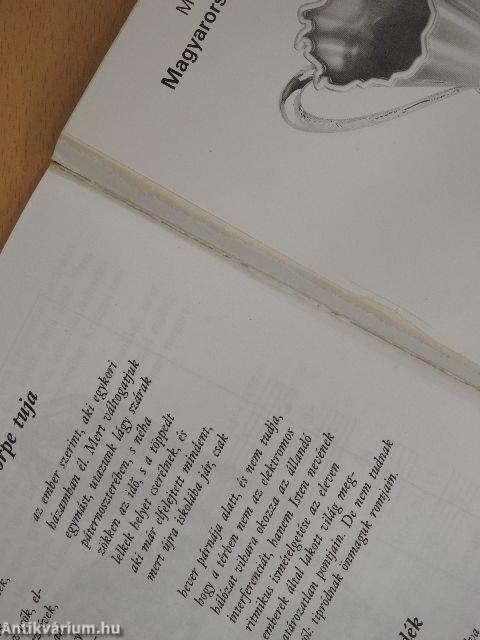 M
Magyarors
örpe tuja
az ember szerint, aki egykori
házamban él. Mert váltogatjuk
egymást, utazunk lágy szárak
páternoszterében, s néha
zökken az idő, s a töppedt
lelkek helyet cserélnek, és
aki már elfelejtett mindent,
mert újra iskolába jár, csak
hever párnája alatt, és nem tudja,
hogy a térben nem az elektromos
hálózat vihara okozza az állandó
interferenciát, hanem Isten nevének
ritmikus ismételgetése az eleven
emberek által lakott világ meg-
zározatlan pontjain. De nem tudnak
ől tipródnak önmaguk romján.
ők, el-
vek,
lék
Antikvárium.hu